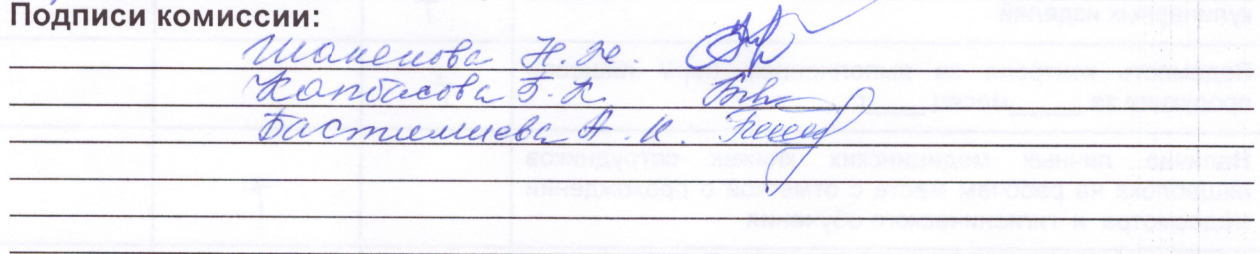 Подписи комиссии:
Шакенова Н. Ж.
Капбасова Б. К.
Бастимиева А. И.